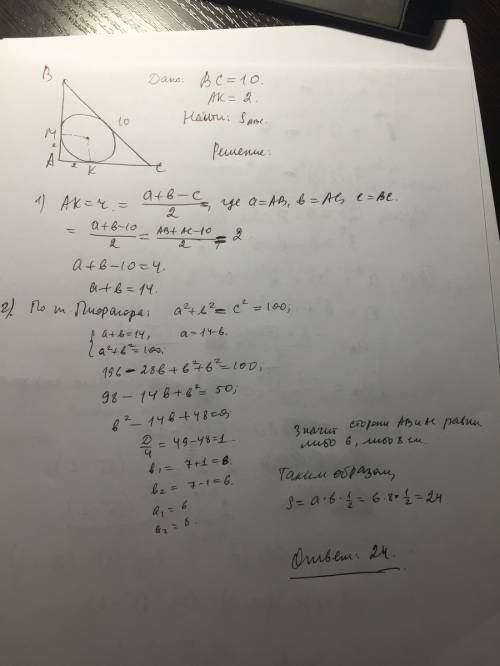 B
10
M
2
A
2
K
C
Дано: BC = 10.
AK = 2.
Найти: S ABC.
Решение:
1) AK = r = (a+b−c)/2 =, где a = AB, b = AC, c = BC.
= (a+b−10)/2 = (AB+AC−10)/2 = 2
a+b−10 = 4.
a+b = 14.
2) По т. Пифагора: a² + b² = c² = 100;
{ a+b = 14, a = 14−b.
a²+b² = 100;
196 − 28b + b² + b² = 100;
98 − 14b + b² = 50;
b² − 14b + 48 = 0
D/4 = 49 − 48 = 1.
b₁ = 7+1 = 8.
b₂ = 7−1 = 6.
a₁ = 6
a₂ = 8.
Значит стороны AB и AC равны
либо 6, либо 8 см.
Таким образом,
S = a·b·1/2 = 6·8·1/2 = 24.
Ответ: 24.